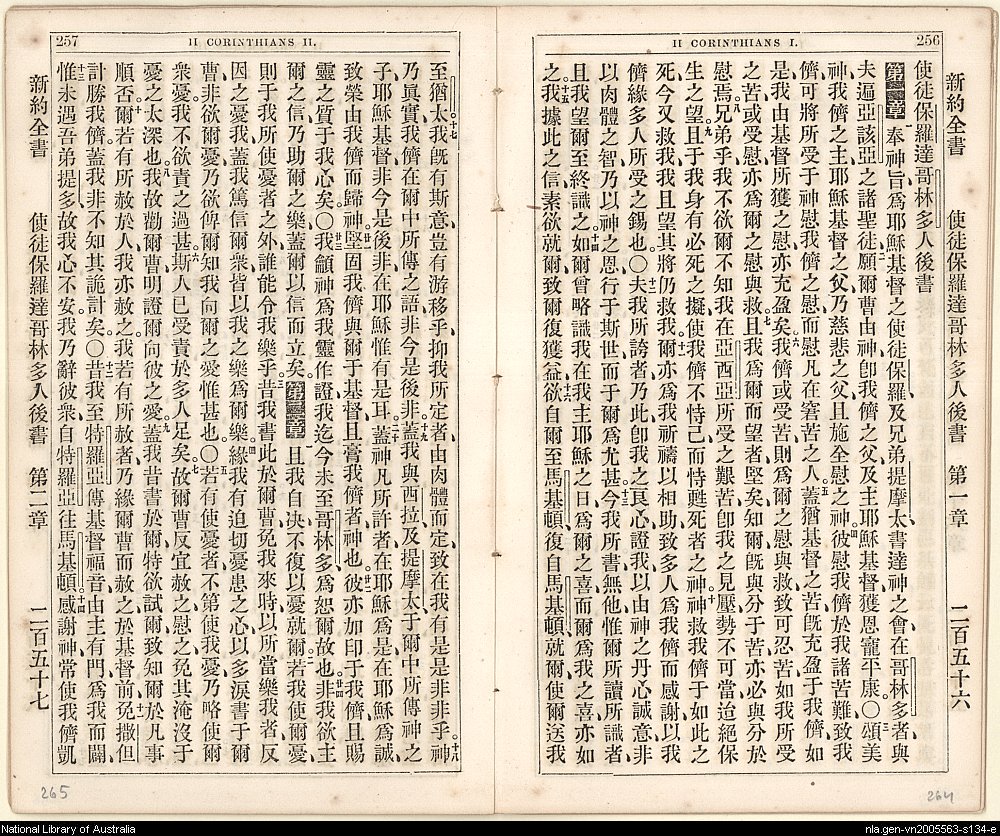 256
II CORINTHIANS I.
新約全書　使徒保羅達哥林多人後書　第一章　二百五十六
使徒保羅達哥林多人後書
第一章 奉神旨爲耶穌基督之使徒保羅及兄弟提摩太書達神之會在哥林多者與
夫遍亞該亞之諸聖徒願爾曹由神卽我儕之父及主耶穌基督獲恩寵平康〇頌美
神我儕之主耶穌基督之父乃慈悲之父且施全慰之神彼慰我儕於我諸苦難致我
儕可將所受于神慰我儕之慰而慰凡在窘苦之人蓋猶基督之苦旣充盈于我儕如
是我由基督所獲之慰亦充盈矣我儕或受苦則爲爾之慰與救致可忍苦如我所受
之苦或受慰亦爲爾之慰與救且我爲爾而望者堅矣知爾旣與分于苦亦必與分於
慰焉兄弟乎我不欲爾不知我在亞西亞所受之艱苦卽我之見壓勢不可當迨絕保
生之望且于我身有必死之擬使我儕不恃己而恃甦死者之神神救我儕于如此之
死今又救我我且望其將仍救我爾亦爲我祈禱以相助致多人爲我儕而感謝以我
儕緣多人所受之錫也〇夫我所誇者乃此卽我之良心證我以由神之丹心誠意非
以肉體之智乃以神之恩行于斯世而于爾爲尤甚今我所書無他惟爾所讀所識者
且我望爾至終識之如爾曾略識我在我主耶穌之日爲爾之喜而爾爲我之喜亦如
之我據此之信素欲就爾致爾復獲益欲自爾至馬基頓復自馬基頓就爾使爾送我
264
257
II CORINTHIANS II.
至猶太我旣有斯意豈有游移乎抑我所定者由肉體而定致在我有是是非非乎神
乃眞實我儕在爾中所傳之語非今是後非蓋我與西拉及提摩太于爾中所傳神之
子耶穌基督非今是後非在耶穌惟有是耳蓋神凡所許者在耶穌爲是在耶穌爲誠
致榮由我儕而歸神堅固我儕與爾于基督且膏我儕者神也彼亦加印于我儕且賜
靈之質于我心矣〇我籲神爲我靈作證我迄今未至哥林多爲恕爾故也非我欲主
爾之信乃助爾之樂蓋爾以信而立矣 第二章 且我自决不復以憂就爾若我使爾憂
則于我所使憂者之外誰能令我樂乎昔我書此於爾曹免我來時以所當樂我者反
因之憂我蓋我篤信爾衆皆以我之樂爲爾樂緣我有迫切憂患之心以多淚書于爾
曹非欲爾憂乃欲俾爾知我向爾之愛惟甚也〇若有使憂者不第使我憂乃略使爾
衆憂我不欲責之過甚斯人已受責於多人足矣故爾曹反宜赦之慰之免其淹沒于
憂之太深也故我勸爾曹明證爾向彼之愛蓋我昔書於爾特欲試爾致知爾於凡事
順否爾若有所赦於人我亦赦之我若有所赦者乃緣爾曹而赦之於基督前免撒但
計勝我儕蓋我非不知其詭計矣〇昔我至特羅亞傳基督福音由主有門爲我而闢
惟未遇吾弟提多故我心不安我乃辭彼衆自特羅亞往馬基頓感謝神常使我儕凱
新約全書　使徒保羅達哥林多人後書　第二章　二百五十七
265
National Library of Australia
nla.gen-vn2005563-s134-e